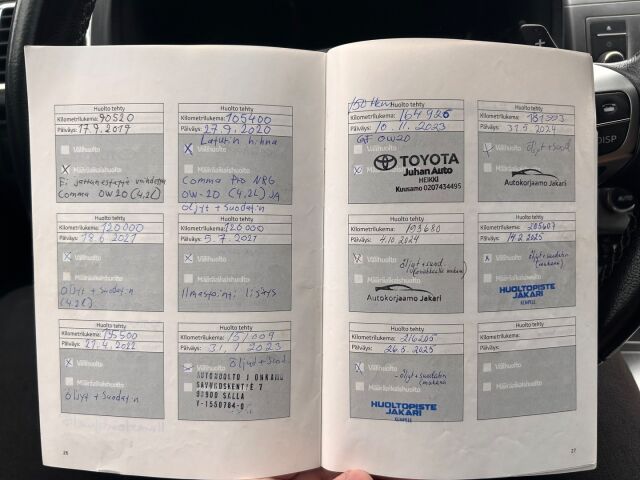 Huolto tehty
Kilometrilukema: 90520
Päiväys: 17.9.2019
Välihuolto
X Määräaikaishuolto
Ei jarrunestettä vaihdettu
Comma 0W20 (4,2L)
Huolto tehty
Kilometrilukema: 105400
Päiväys: 27.9.2020
Laturin hihna
X Välihuolto
Määräaikaishuolto
Comma Pro NRG
0W-20 (4,2L) JA
öljyt + Suodat:n
Huolto tehty
Kilometrilukema: 120000
Päiväys: 18.6.2021
X Välihuolto
Määräaikaishuolto
öljyt + Suodat:n
(4,2L)
Huolto tehty
Kilometrilukema: 120000
Päiväys: 5.7.2021
X Välihuolto
Määräaikaishuolto
Ilmastointi lisäys
Huolto tehty
Kilometrilukema: 135500
Päiväys: 21.4.2022
X Välihuolto
Määräaikaishuolto
öljyt + Suodat:n
Huolto tehty
Kilometrilukema: 151009
Päiväys: 31.1.2023
Välihuolto öljyt + Suod.
Määräaikaishuolto
AUTOHUOLTO J ONKAMO
SAVUKOSKENTIE 7
98900 SALLA
Y-1550784-0
26
150 tkm
Huolto tehty
Kilometrilukema: 164926
Päiväys: 10.11.2023
GF 0W20
Välihuolto
X
TOYOTA
Juhan Auto
HEIKKI
Kuusamo 0207434495
Huolto tehty
Kilometrilukema: 181593
Päiväys: 31.5.2024
X Välihuolto öljyt + suod.
Autokorjaamo Jakari
Huolto tehty
Kilometrilukema: 193680
Päiväys: 4.10.2024
X Välihuolto öljyt + suod.
Määräaikaishuolto
Autokorjaamo Jakari
Huolto tehty
Kilometrilukema: 205607
Päiväys: 14.2.2025
X Välihuolto öljyt + suodatin
(mukana)
Määräaikaishuolto
HUOLTOPISTE
JAKARI
KEMPELE
Huolto tehty
Kilometrilukema: 216205
Päiväys: 26.5.2025
X Välihuolto
Määräaikaishuolto
- öljyt + suodatin
(mukana)
HUOLTOPISTE
JAKARI
KEMPELE
Huolto tehty
Kilometrilukema:
Päiväys:
Välihuolto
Määräaikaishuolto
27
DISP